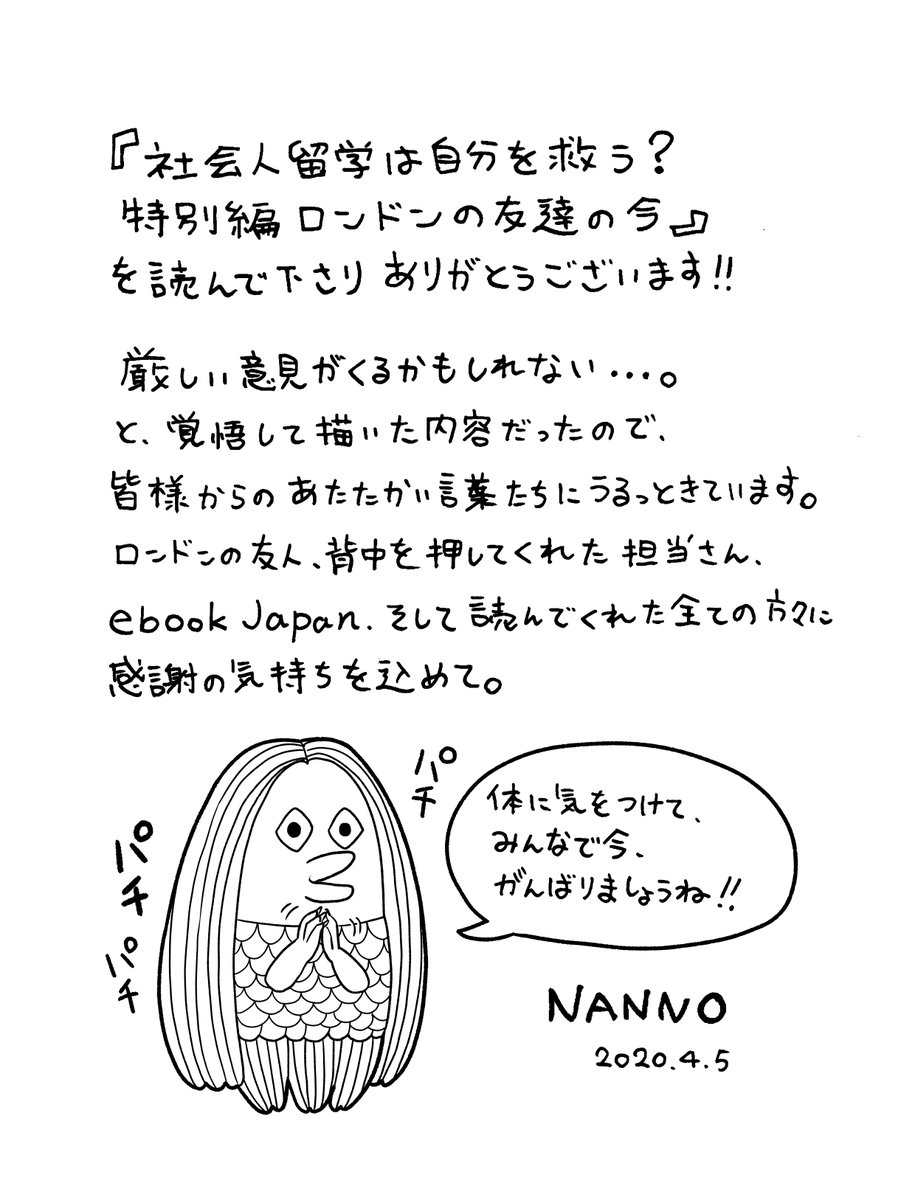 『社会人留学は自分を救う?
特別編 ロンドンの友達の今』
を読んで下さり ありがとうございます!!
厳しい意見がくるかもしれない...。
と、覚悟して描いた内容だったので、
皆様からの あたたかい言葉たちにうるっときています。
ロンドンの友人、背中を押してくれた 担当さん、
ebook Japan、そして読んでくれた全ての方々に
感謝の気持ちを込めて。
パチ
パチ
パチ
体に気をつけて、
みんなで今、
がんばりましょうね!!
NANNO
2020.4.5